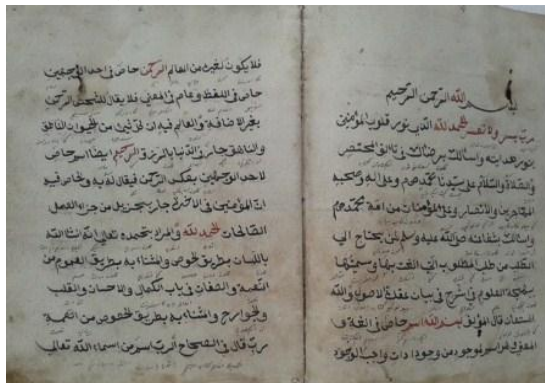 بسم الله الرحمن الرحيم
رب يسر ولا تعسر الحمد لله الذي نور قلوب المؤمنين
بنور هدايته واسالك برضائك في تاليف المختصر
والصلاة والسلام على سيدنا محمد وعلى اله وصحبه
المهاجرين والانصار وعلى المؤمنات من امة محمد
واسالك بشفاعته صلى الله عليه وسلم لمن يحتاج الي
الطلب من طلب مطلوب اني الفت بها وسميتها
ببهجة العلوم في شرح في بيان عقيدة الاصول والله
المستعان قال المؤلف بسم الله اسم خاص في اللغة و
المعنى في المراسم الموجود من وجود ذات واجب الوجود
فلا يكون لغيره من العالم الرحمن خاص في احد الوجهين
خاص في اللفظ وعام في المعنى فلا يقال للشخص الرحمن
بغير الاضافة والعالم فيه ان تؤنس من الحيوان الناطق
والناطق جار في الدنيا بالرزق الرحيم ايضا اسم خاص
لاحد الوجهين بعكس الرحمن فيقال له به وخاص فيه
ان المؤمنين في الاخرة جار بتجزيل من جزاء العمل
الصالحات الحمد لله والمراد بتحميده تعالى انه انشا الله
باللسان بطريق الخصوص والمثناء به بطريق العموم من
النعمة والصفات في باب الكمال والاحسان والقلب
والجوارح والمثناء به بطريق الخصوص من النعمة
رب قال في الصحاح الرب اسم من اسماء الله تعالى